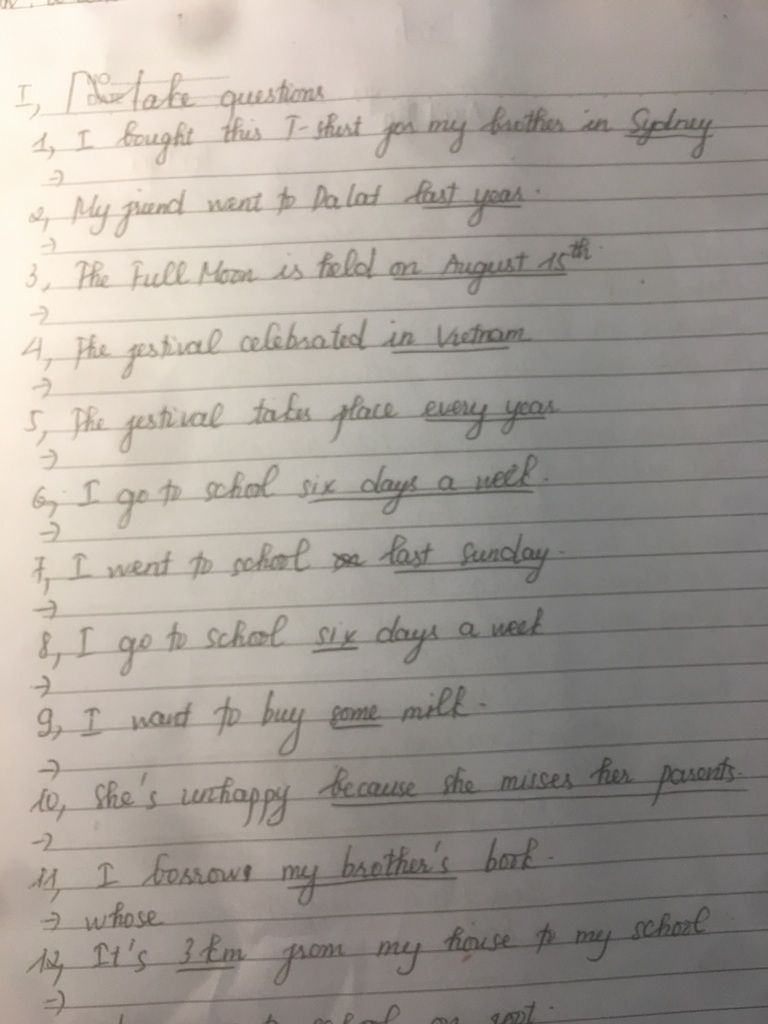 I, Make questions
1, I bought this T-shirt for my brother in Sydney
→
2, My friend went to Da Lat last year.
→
3, The Full Moon is held on August 15th.
→
4, The festival celebrated in Vietnam
→
5, The festival takes place every year
→
6, I go to school six days a week.
→
7, I went to school last Sunday.
→
8, I go to school six days a week
→
9, I want to buy some milk.
→
10, She's unhappy because she misses her parents.
→
11, I borrows my brother's book.
→ whose
12, It's 3 km from my house to my school
→